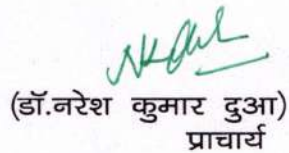 (डॉ.नरेश कुमार दुआ)
प्राचार्य